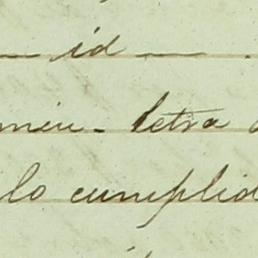 — id — .
letra
lo cumplid